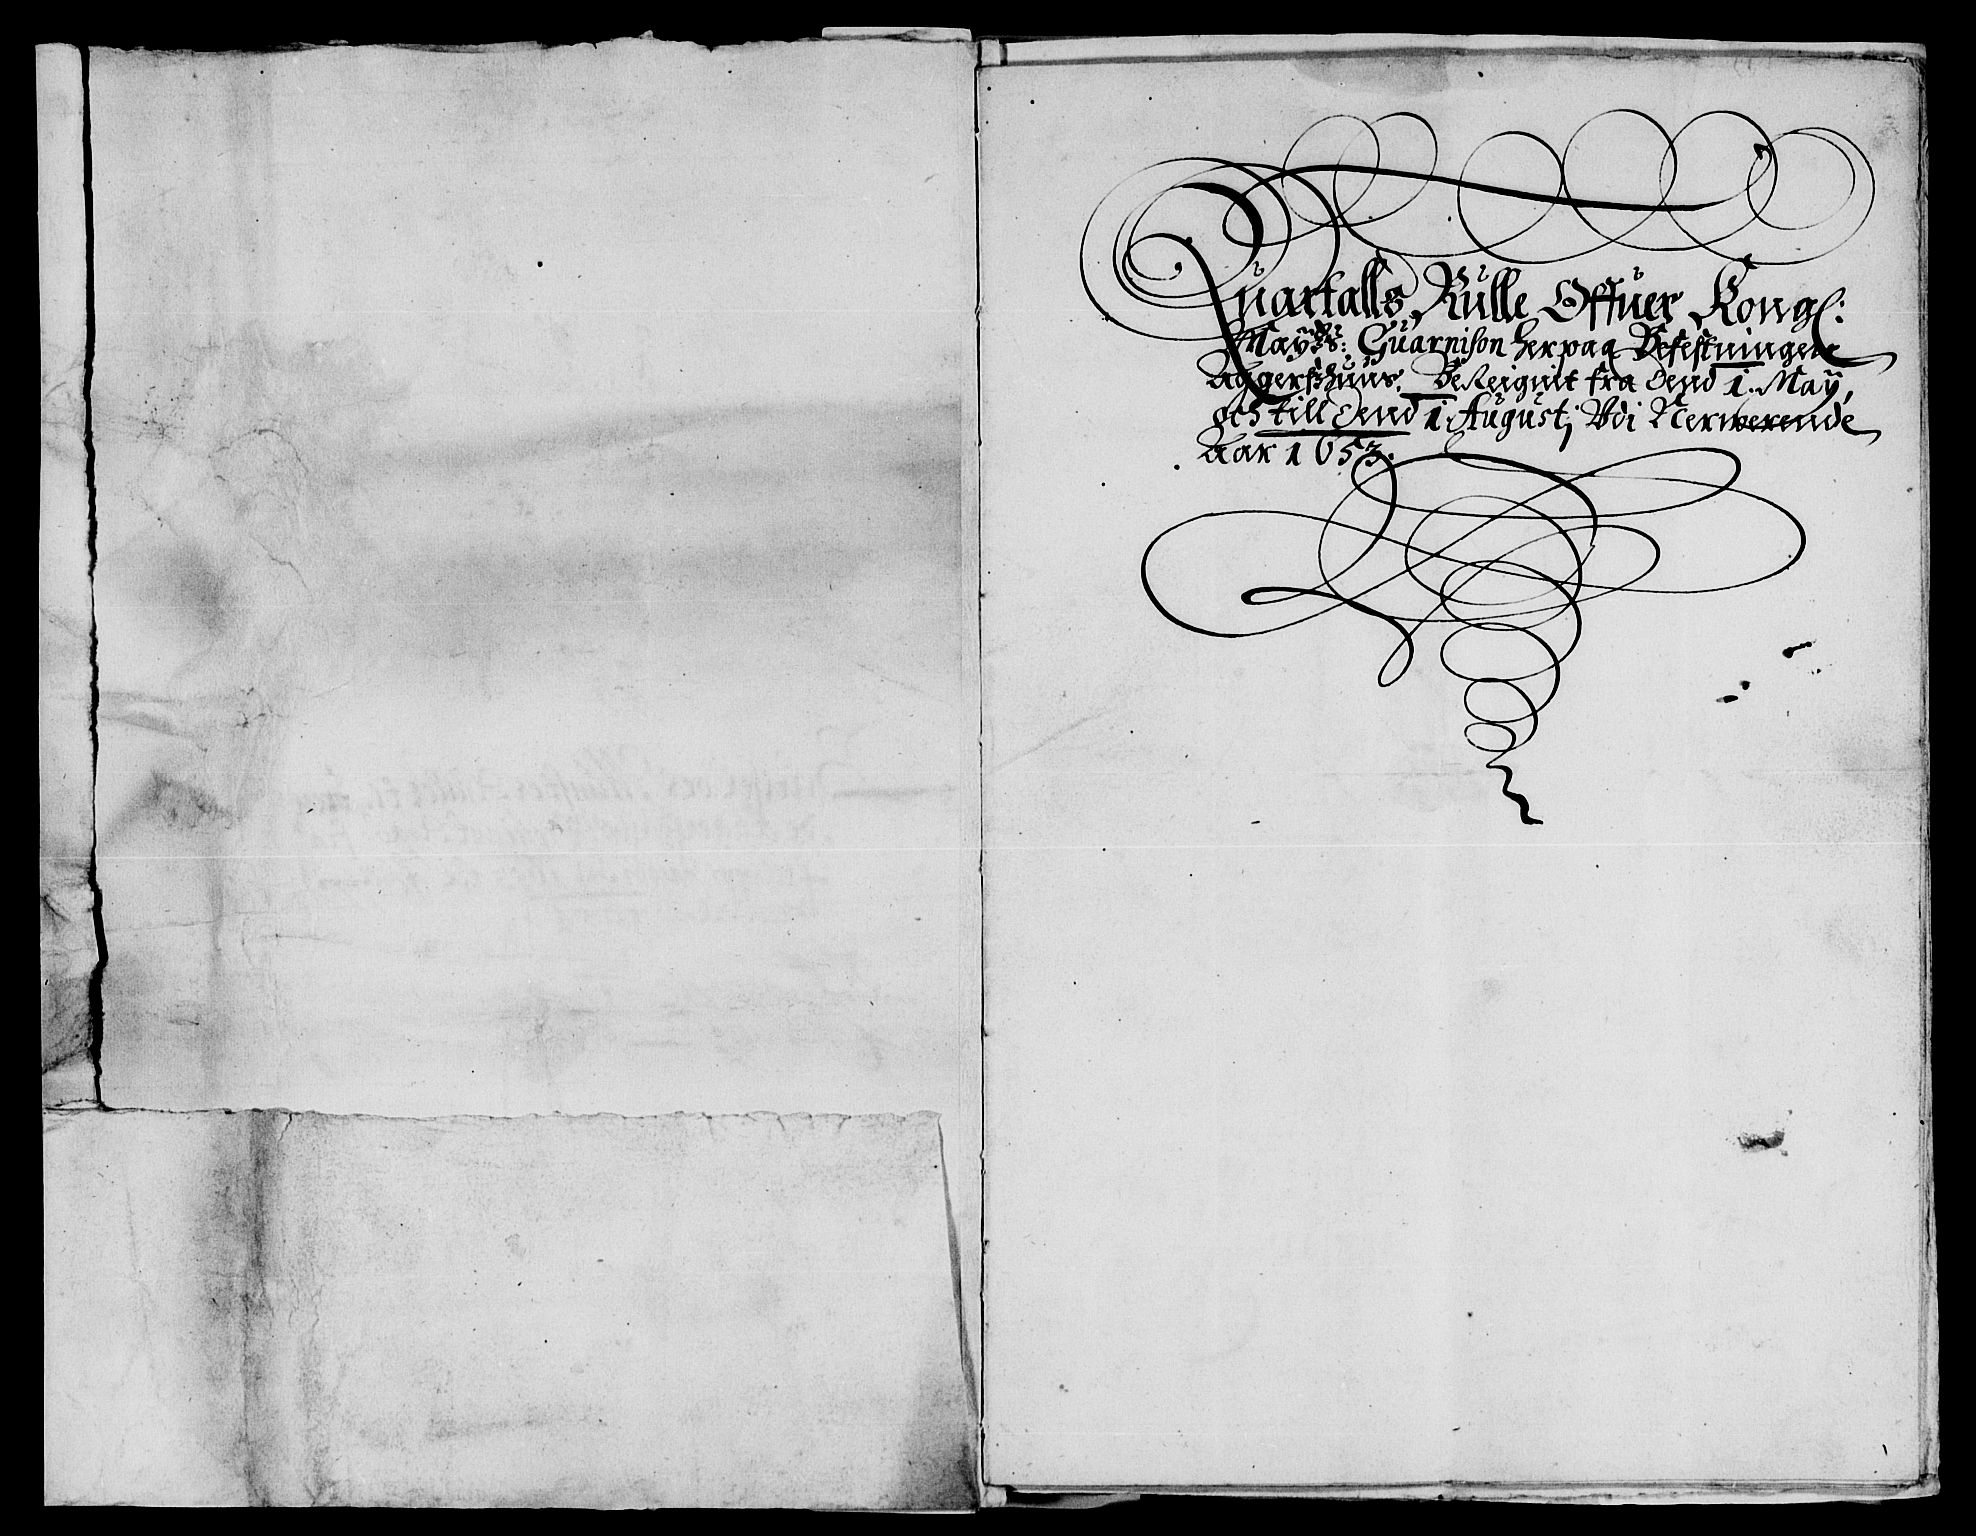 Quartalls Rulle Offuer Kongl:
Maytts: Guarnison her paa Befestningen
Aggershuus. Bereignit fra dend 1. May,
och till dend 1. Augustj Vdi Nerwerende
Aar 1653.